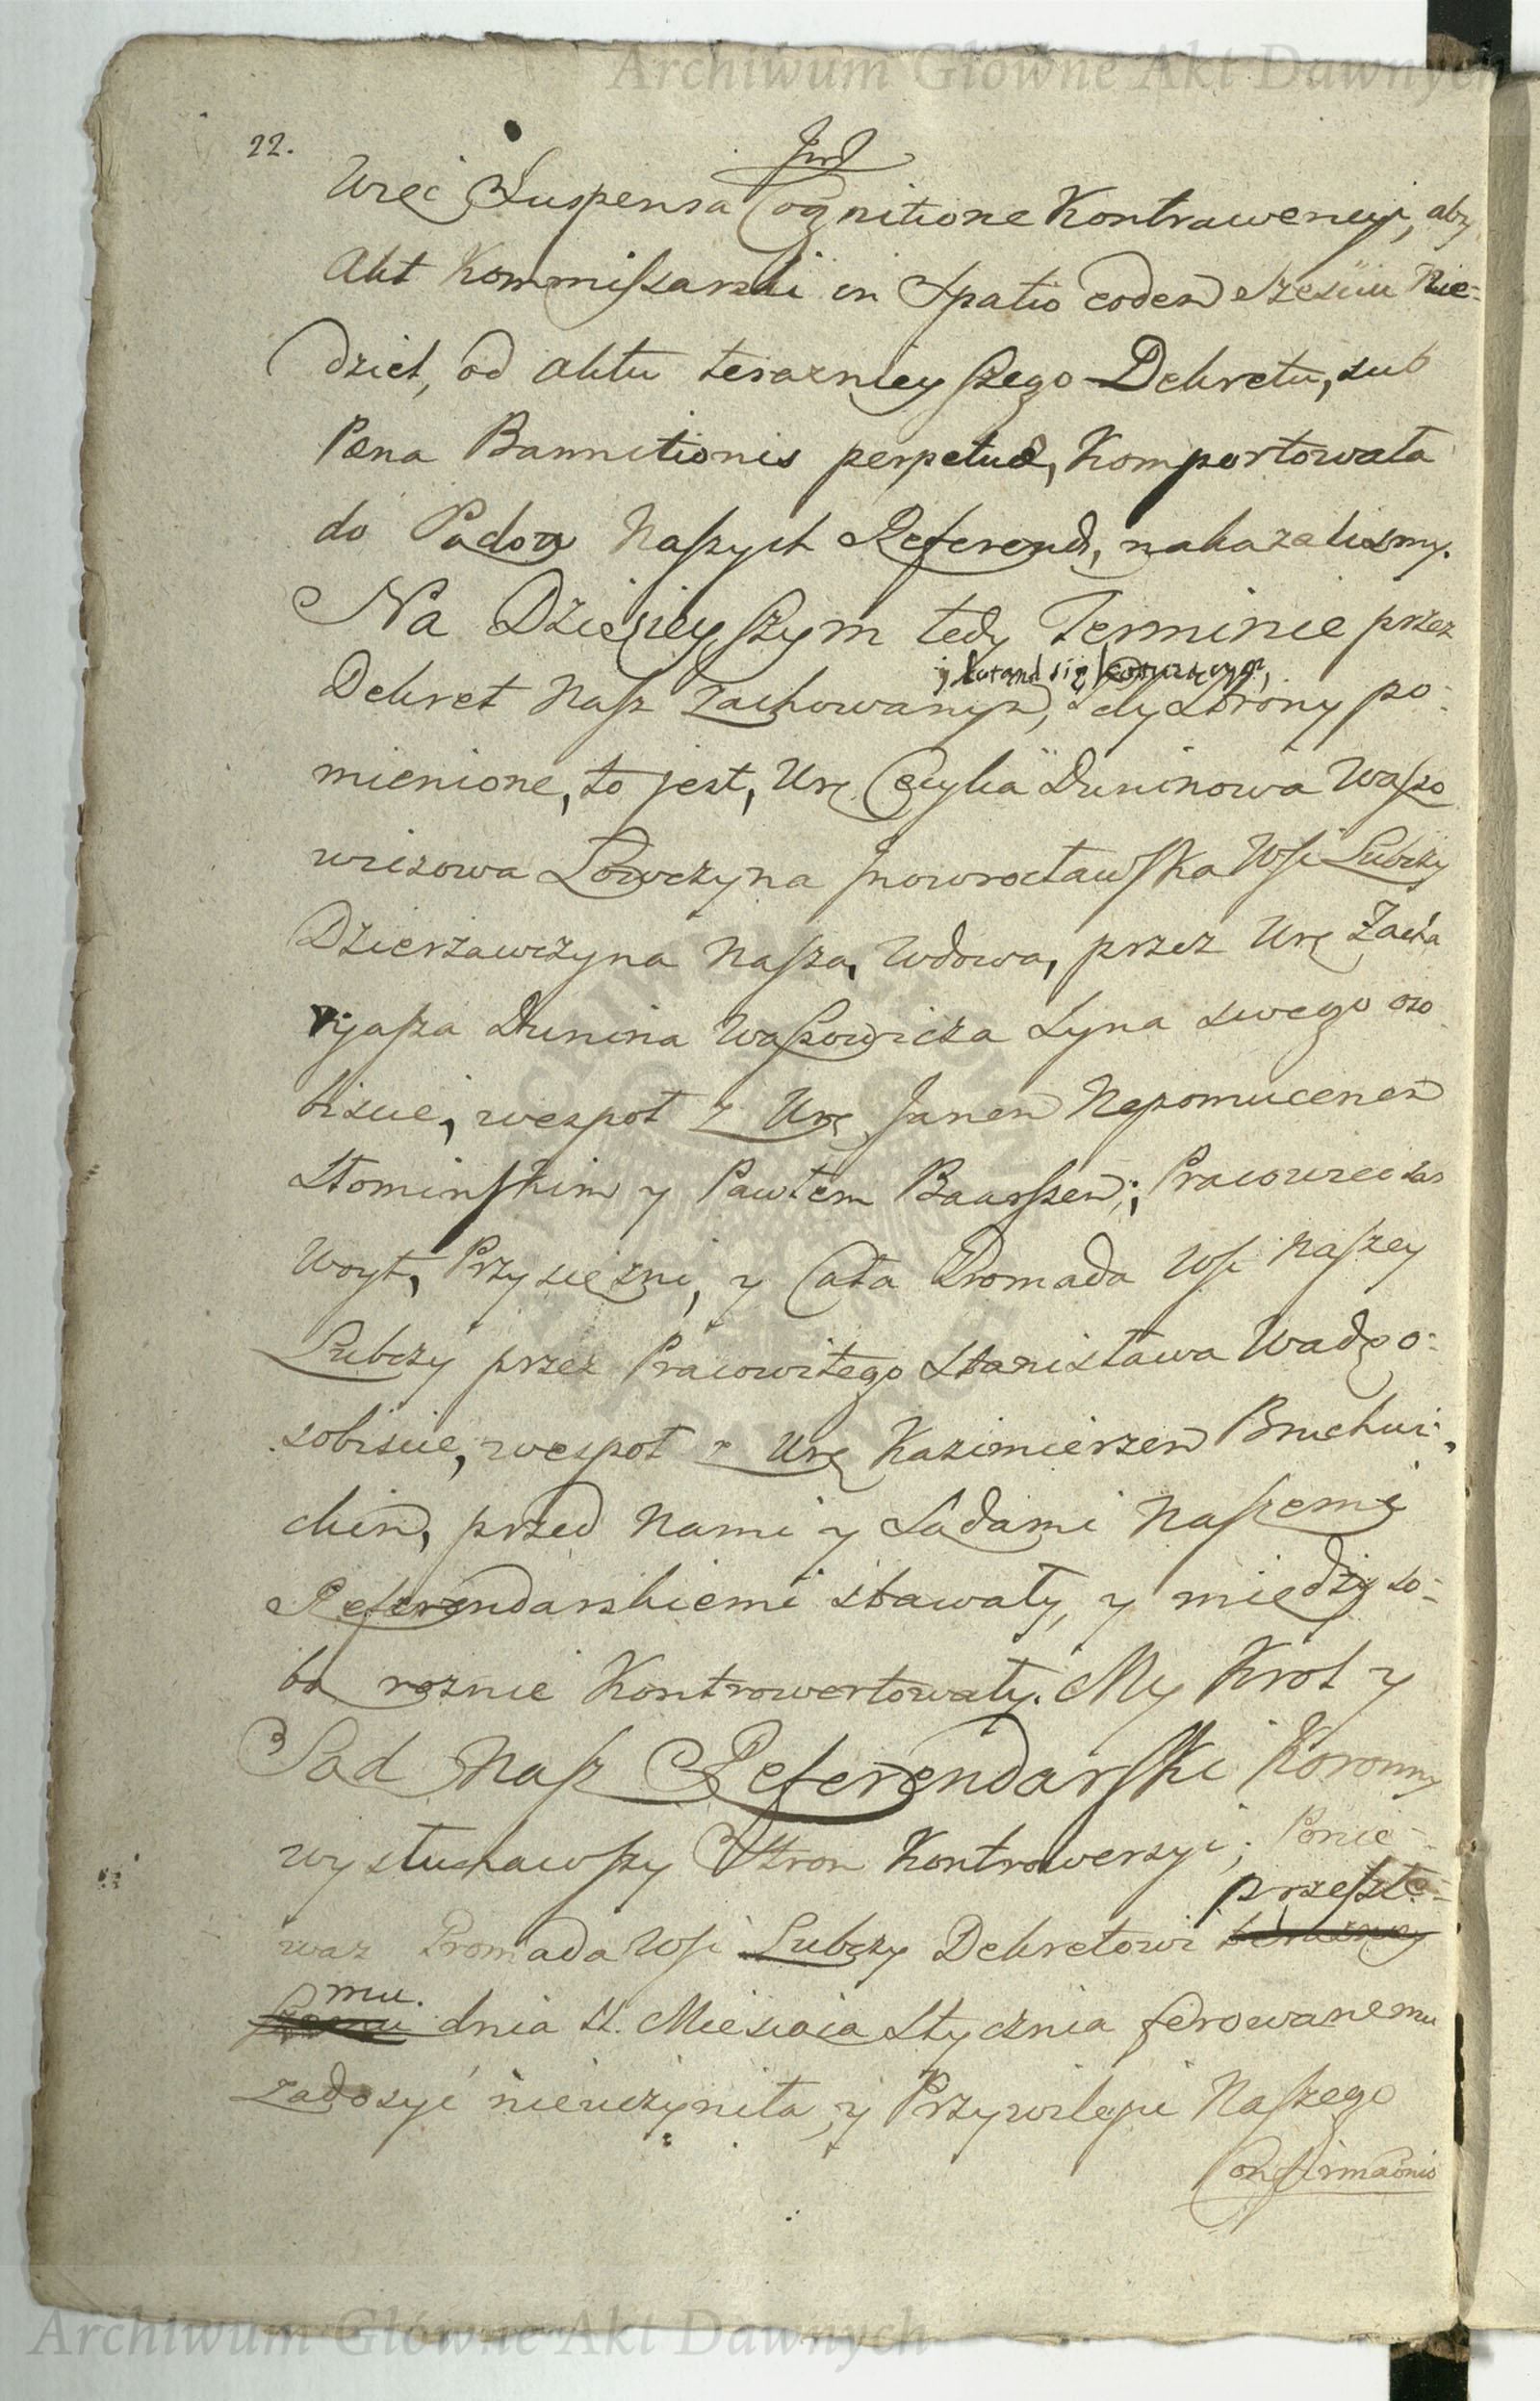 Archiwum Główne Akt Dawnych
22.
Wzeć Suspensa Cognitione Kontrawencyi, aby
Akt Kommiſsarski in Spatio eodem sześciu Nie-
dziel, od aktu terazniey ſzego Dekretu, sub
Pæna Bannitionis perpetuæ, Komportowała
do Sądow Naſzych Referend, nakazaliśmy.
Na Dzisieyſzym tedy Terminie przez
y kurand się
Dekret Naſz zachowanym, gdy Strony po-
mienione, to jest, Ur Cecylia Duninowa Waſso
wiczowa Łowczyna Jnowrocławſka Wſi Lubczy
Dzierzawczyna Naſza, Wdowa, przez Ur Zacha
ryaſza Dunina Waſsowicza Syna swego oso
biście, wespoł z Ur Janem Nepomucenem
Słominſkim y Pawłem Baarſzem; Pracowici zas
Woyt, Przysiężni, y Cała Gromada Wſi Naſzey
Lubczy przez Pracowitego Stanisława Wadę o-
sobiscie, wespoł z Ur Kazimierzem Bruchwi-
ckim, przed Nami y Sądami Naſzemi
Referendarskiemi stawały, y między so-
bą roznie Kontrowertowały. My Krol y
Sąd Naſz Referendarſki Koronny
wysłuchawſzy Stron Kontrowersyi; Ponie-
przeſzłe-
waz Gromada Wſi Lubczy Dekretowi
mu.
dnia Miesiąca Stycznia ferowanemu
zadosyć nieuczyniła, y Przywileju Naſzego
Confirmaõnis
Archiwum Główne Akt Dawnych